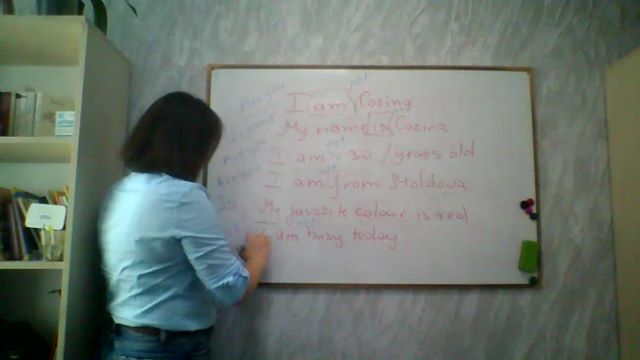 I am Corina
not
My name is Corina
I am 30 / years old
not
I am from Moldova
not
My favorite colour is red
I am busy today
not